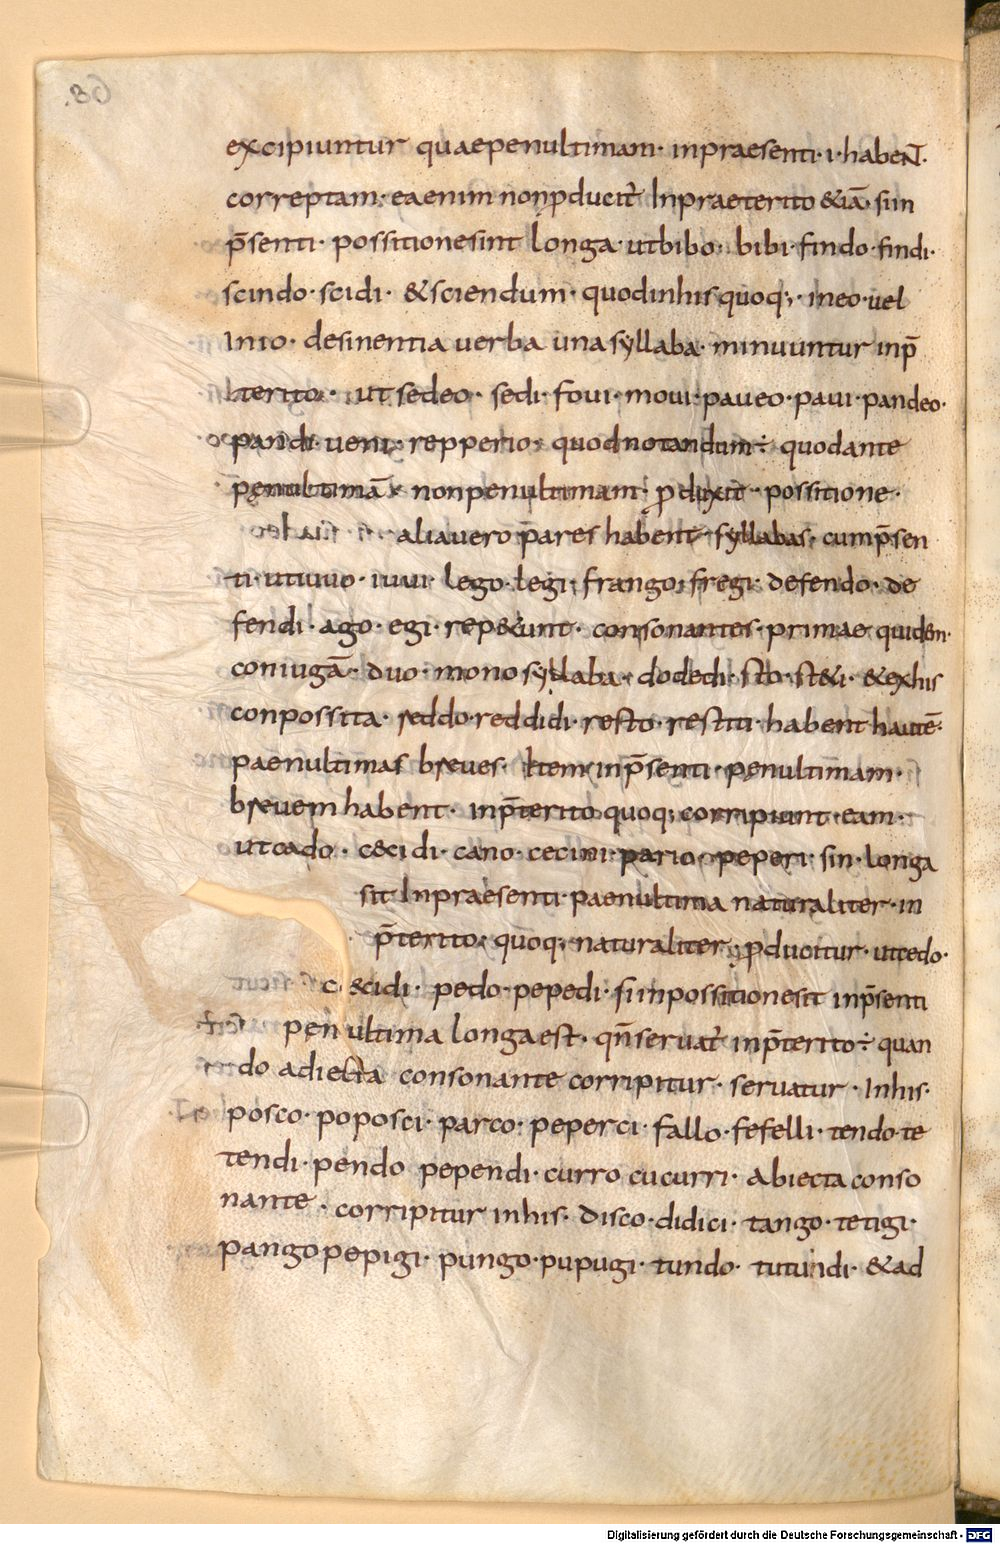 excipiuntur quaepenultimam· inpraesenti·i·habeN̄·
correptam· eaenim nonꝓducit̃ Inpraeterito &iā· siin
p̄senti· possitionesint longa· utbibo· bibi· findo· findi·
scindo· scidi· &sciendum· quodinhisquoq; · ineo·uel
Inio· desinentia uerba unasyllaba· minuuntur inp̄
terito· ut sedeo· sedi· foui· moui· paueo· paui· pandeo·
pandi· ueni· repperio· quodnotandum÷ quodante
penultimā· nonpenultimam· ꝓduxit· possitione·
aliauero p̄ares habent· syllabas· cump̄sen
ti· utiuuo· iuui· lego· legi· frango· fregi· defendo· de
fendi· ago· egi· rep&unt· consonantes· primae quidem·
coniugā· duo· monosyllaba· dodedi· sto· st&i· &exhis
conpossita· reddo· reddidi· resto· restiti· habent hautē·
paenultimas breues· Item inp̄senti· penultimam·
breuem habent· inp̄terito quoq; corripiunt· eam·
utcado· cecidi· cano· cecini· pario· peperi· sin· longa
sit Inpraesenti· paenultima naturaliter· in
p̄terito· quoq; naturaliter· ꝓducitur· utcedo·
c&idi· pedo· pepedi· siinpossitionesit inp̄senti
penultima longaest· qn̄seruat̃ inp̄terito÷ quan
do adiecta consonante corripitur· seruatur· Inhis·
posco· poposci· parco· peperci· fallo· fefelli· tendo· te
tendi· pendo pependi· curro cucurri· abiecta conso
nante· corripitur inhis· disco· didici· tango· tetigi·
pango pepigi· pungo· pupugi· tundo· tutundi· &ad
Digitalisierung gefördert durch die Deutsche Forschungsgemeinschaft - DFG